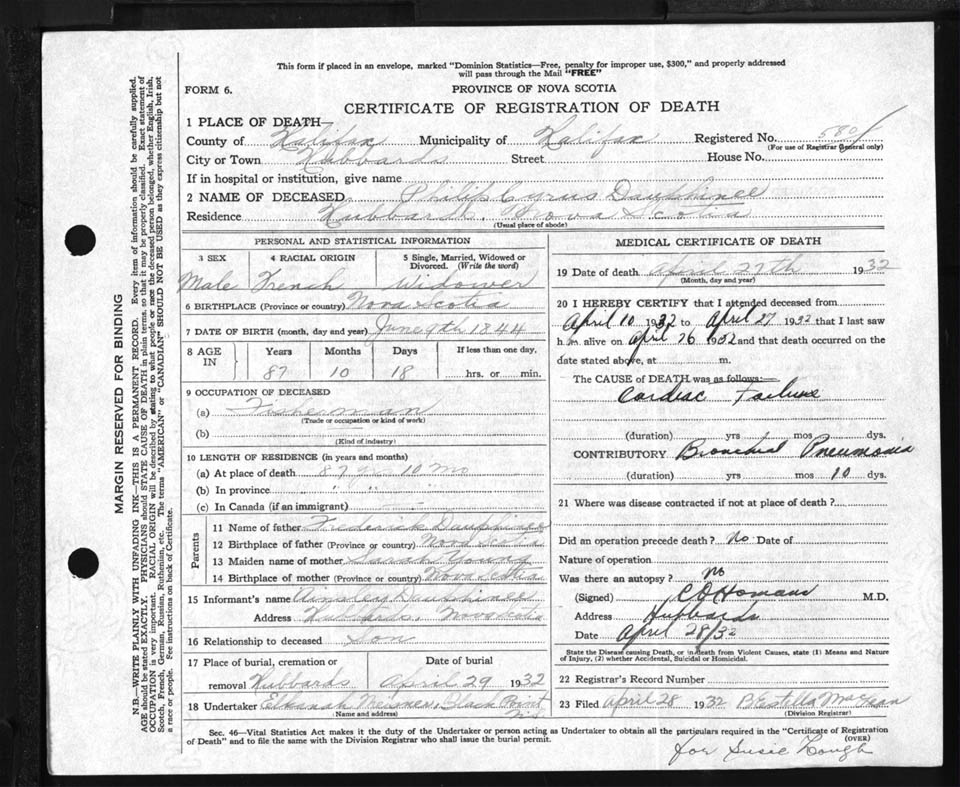 This form if placed in an envelope, marked "Dominion Statistics—Free, penalty for improper use, $300," and properly addressed
will pass through the Mail "FREE"
FORM 6.
PROVINCE OF NOVA SCOTIA
CERTIFICATE OF REGISTRATION OF DEATH
1 PLACE OF DEATH
County of Halifax Municipality of Halifax Registered No. 580
(For use of Registrar General only)
City or Town Hubbards Street House No.
If in hospital or institution, give name
2 NAME OF DECEASED Philip Cyrus Dauphinee
Residence Hubbards, Nova Scotia
(Usual place of abode)
PERSONAL AND STATISTICAL INFORMATION
3 SEX 4 RACIAL ORIGIN 5 Single, Married, Widowed or
Divorced. (Write the word)
Male French Widower
6 BIRTHPLACE (Province or country) Nova Scotia
7 DATE OF BIRTH (month, day and year) June 9th 1844
8 AGE IN Years Months Days If less than one day,
87 10 18 hrs. or min.
9 OCCUPATION OF DECEASED
(a) Fisherman
(Trade or occupation or kind of work)
(b)
(Kind of industry)
10 LENGTH OF RESIDENCE (in years and months)
(a) At place of death 87 yrs 10 mo
(b) In province " " " "
(c) In Canada (if an immigrant)
Parents
11 Name of father Frederick Dauphinee
12 Birthplace of father (Province or country) Nova Scotia
13 Maiden name of mother Sarah Young
14 Birthplace of mother (Province or country) Nova Scotia
15 Informant's name Ainsley Dauphinee
Address Hubbards, Nova Scotia
16 Relationship to deceased Son
17 Place of burial, cremation or Date of burial
removal Hubbards April 29 1932
18 Undertaker Elkanah Meisner, Black Point
N.S.
(Name and address)
MEDICAL CERTIFICATE OF DEATH
19 Date of death April 27th 1932
(Month, day and year)
20 I HEREBY CERTIFY that I attended deceased from
April 10 1932 to April 27 1932 that I last saw
him alive on April 26 1932 and that death occurred on the
date stated above, at m.
The CAUSE of DEATH was as follows:—
Cardiac Failure
(duration) yrs mos dys.
CONTRIBUTORY Bronchial Pneumonia
(duration) yrs mos 10 dys.
21 Where was disease contracted if not at place of death?
Did an operation precede death? No Date of
Nature of operation
Was there an autopsy? no
(Signed) C O Homans M.D.
Address Hubbards
Date April 28/32
State the Disease causing Death, or in death from Violent Causes, state (1) Means and
Nature of Injury, (2) whether Accidental, Suicidal or Homicidal.
22 Registrar's Record Number
23 Filed April 28 1932 B Estella MacLean
(Division Registrar)
Sec. 46—Vital Statistics Act makes it the duty of the Undertaker or person acting as Undertaker to obtain all the particulars required in the "Certificate of Registration
of Death" and to file the same with the Division Registrar who shall issue the burial permit.
(OVER)
for Susie Gough
MARGIN RESERVED FOR BINDING
N.B.—WRITE PLAINLY WITH UNFADING INK—THIS IS A PERMANENT RECORD. Every item of information should be carefully supplied.
AGE should be stated EXACTLY. PHYSICIANS should STATE CAUSE OF DEATH in plain terms, so that it may be properly classified. Exact statement of
OCCUPATION is very important. RACIAL ORIGIN will be described by stating to what people or race the deceased person belonged, whether English, Irish,
Scotch, French, German, Russian, Ruthenian, etc. The terms "AMERICAN" or "CANADIAN" SHOULD NOT BE USED as they express citizenship but not
a race or people. Fee instructions on back of Certificate.